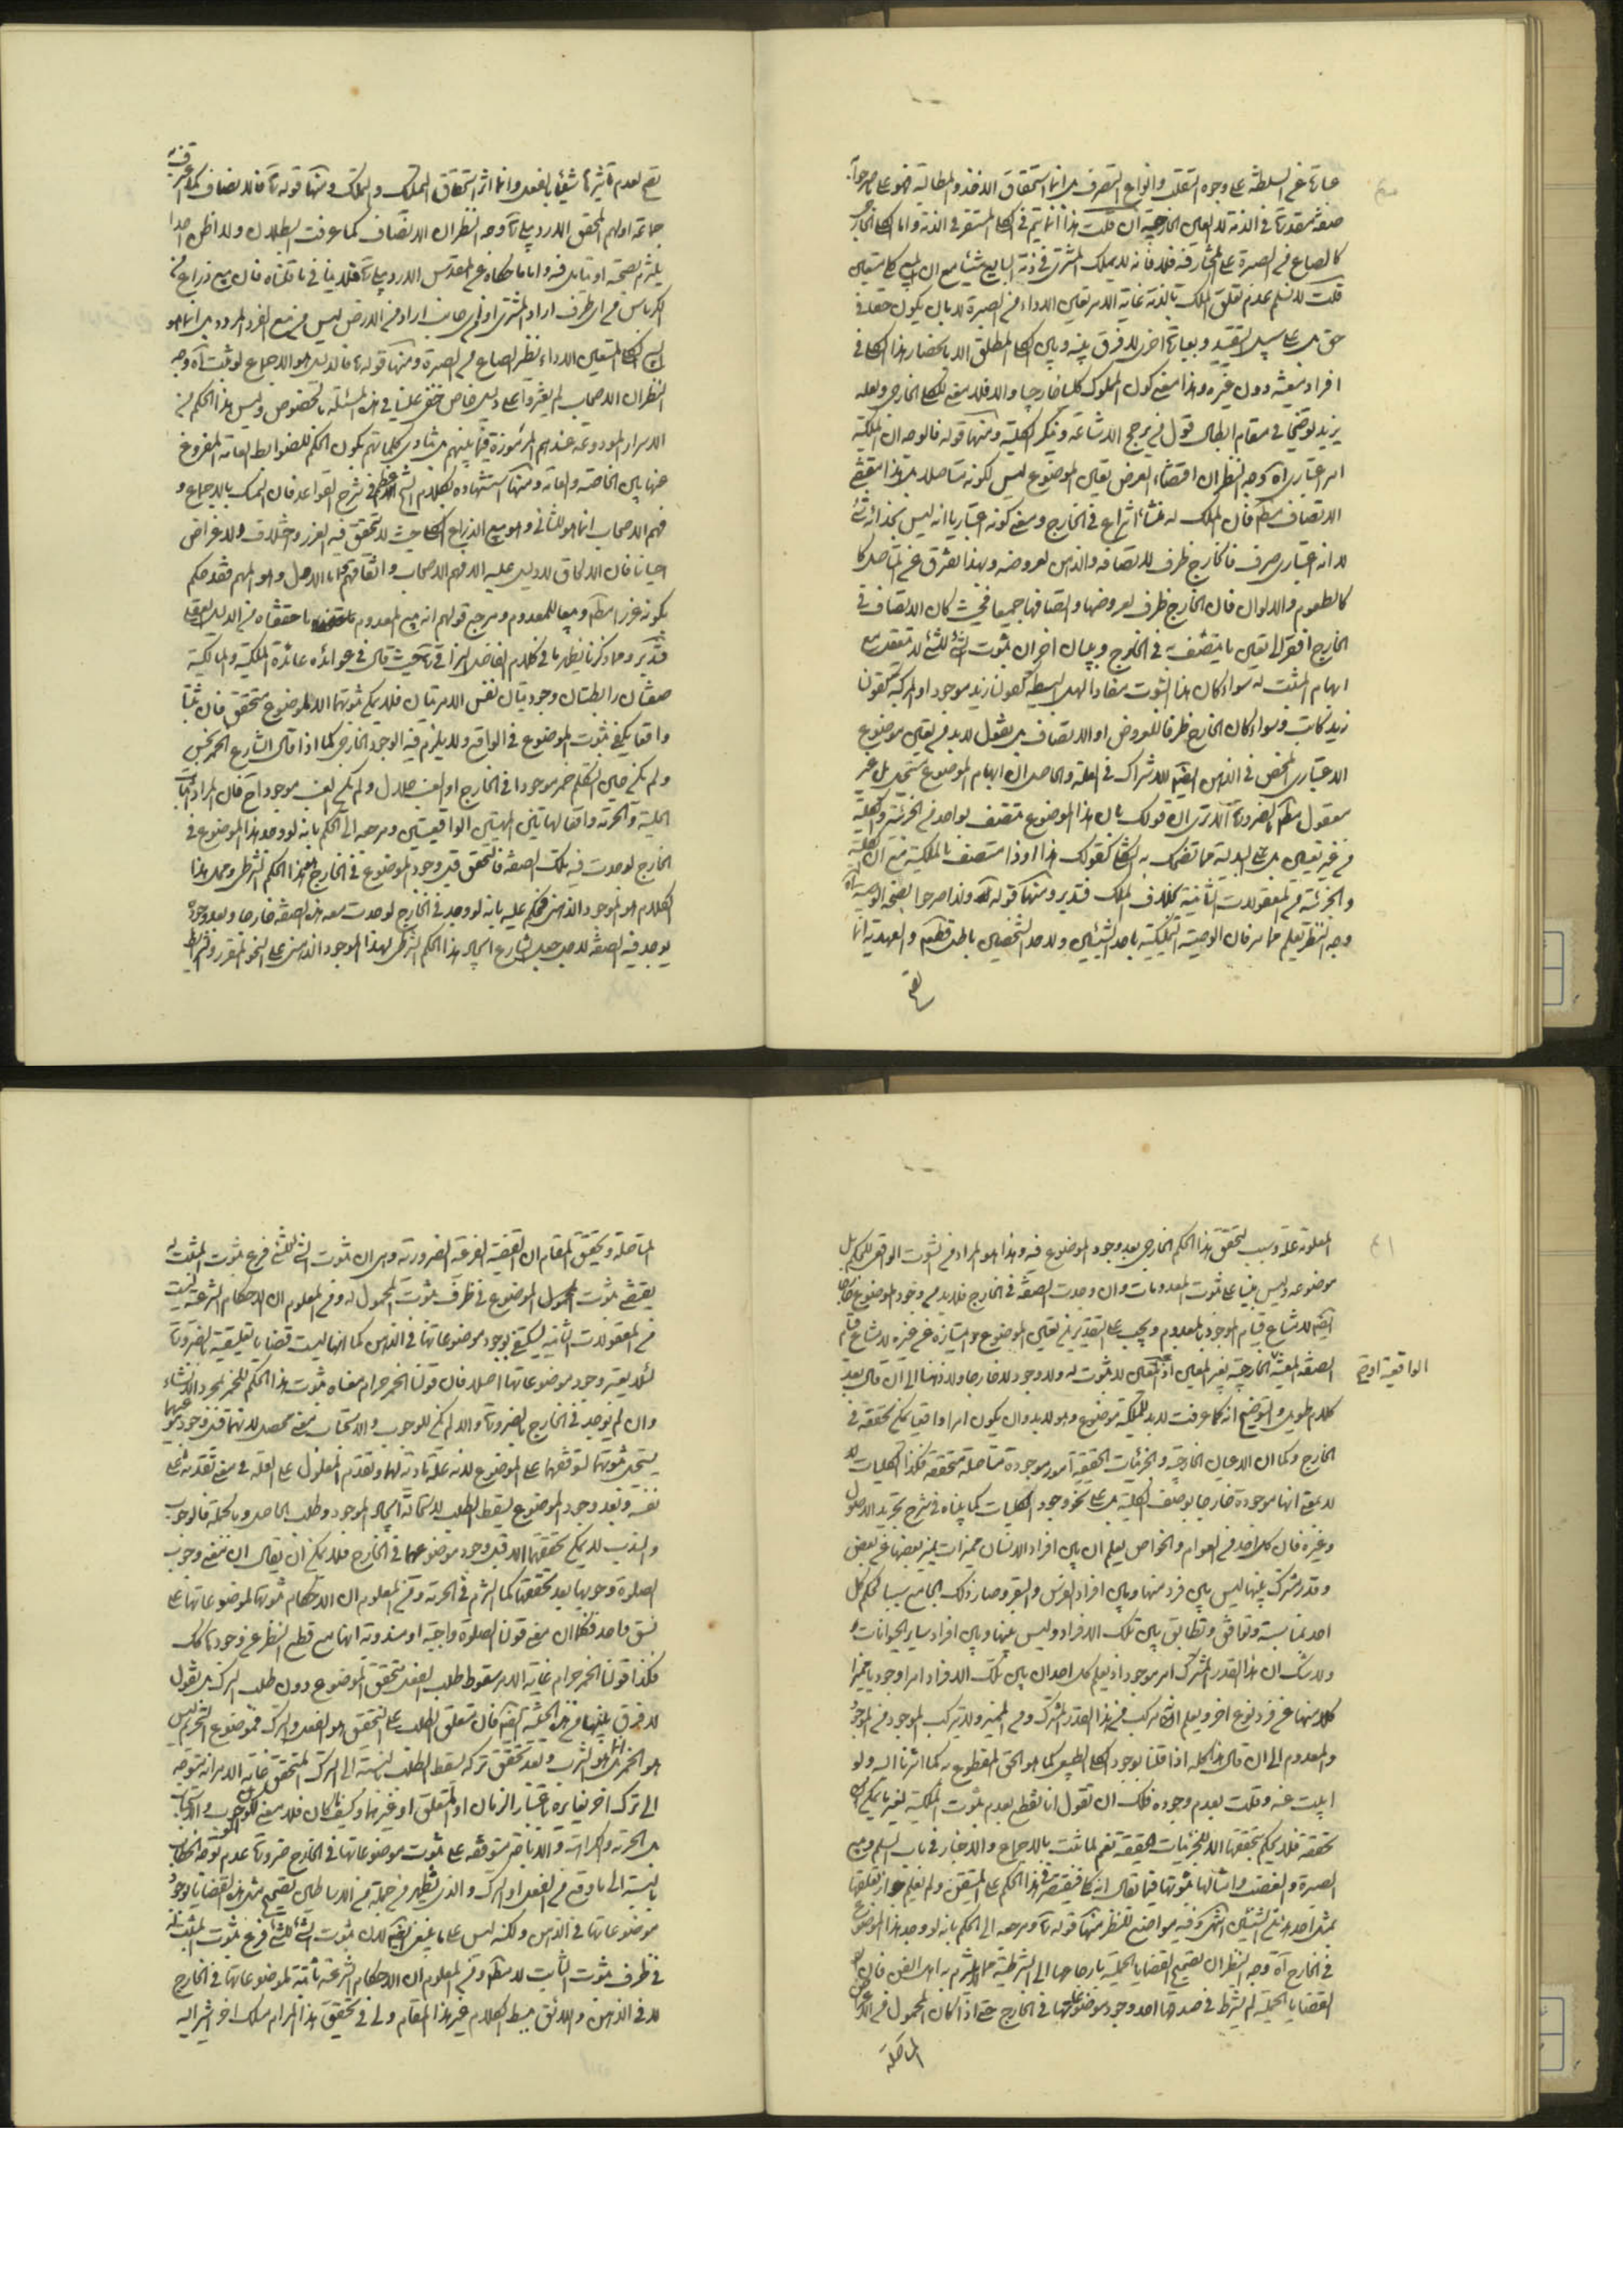 عبارة عن السلطنة على وجوه التقلب وانواع التصرف بل انما استحقاق الاخذ والمطالبة فهو على ما صرحوا به
صفة متقررة في الذمة لا العين الخارجية ان قلت هذا انما يتم في الكلي المستقر في الذمة واما الكلي الخارجي
كالصاع من الصبرة على المختار فيه فلا فانه لا يملك المشتري في ذمة البايع شيئا مع ان المبيع كلي متعين
قلت لا نسلم عدم تعلق الملك بالذمة غاية الامر تعين الاداء من الصبرة لا بان يكون حقا في
حق بل على سبيل التقييد وبعبارة اخرى لا فرق بينه وبين الكلي المطلق الا بانحصار هذا الكلي في
افراد معينة دون غيره وهذا معنى كون المملوك كليا خارجيا والا فلا معنى للكلي الخارجي ولعله
يزيد توضيحا في مقام ابطال قول من يرجح الاشاعة وينكر الكلية ومنها قوله فالوجه ان الملكية
امر اعتباري اه وجه النظر ان اقتضاء العرض تعيين الموضوع ليس لكونه متاصلا بل هذا مقتضى
الاتصاف مطلقا فان الملك له منشأ انتزاع في الخارج ومعنى كونه اعتباريا انه ليس بحذائه شئ
لا انه اعتباري صرف فالخارج ظرف للاتصاف والذهن لعروضه وبهذا يفترق عن المتاصل كا
كالطعوم والالوان فان الخارج ظرف لعروضها واتصافها جميعا فحيث كان الاتصاف في
الخارج افتقر الى تعيين ما يتصف به في الخارج وببيان اخر ان ثبوت الشئ للشئ لا يتعقل مع
ابهام المثبت له سواء كان هذا الثبوت مفاد الهل البسيطة كقولنا زيد موجود او المركبة كقولنا
زيد كاتب وسواء كان الخارج ظرفا للعروض او الاتصاف بل نقول لا بد من تعيين موضوع
الاعتباري المحض في الذهن ايضا للاشتراك في العلة والحاصل ان ابهام الموضوع مستحيل بل غير
معقول مطلقا بالضرورة الا ترى ان قولك بان هذا الموضوع متصف بواحد من الجزئية والكلية
من غير تعيين بل على البدلية مما تضحك به الثكلى كقولك هذا او ذا متصف بالملكية مع ان الكلية
والجزئية من المعقولات الثانية بخلاف الملك فتدبر ومنها قوله ره ولذا صرحوا بصحة الوصية اه
وجه النظر يعلم مما مر فان الوصية التمليكية باحد الشيئين ولاحد الشخصين باطلة قطعا والعهدية انما
تصح
تصح لعدم تاثيرها شيئا بالفعل وانما اثر استحقاق التملك والتملك ومنها قوله ره فالانصاف كما اعترف به
جماعة اولهم المحقق الاردبيلي ره اه وجه النظر ان الانصاف كما عرفت البطلان ولا اظن احدا
يلتزم بصحته او يتامل فيه واما ما حكاه عن المقدس الاردبيلي ره فلا ينافي ما قلناه فان بيع ذراع من
الكرباس من اي طرف اراد المشتري او من اي جانب اراد من الارض ليس من بيع الفرد المردد بل انما هو
بيع الكلي المتعين الاداء نظير الصاع من الصبرة ومنها قوله ره فالدليل هو الاجماع لو ثبت اه وجه
النظر ان الاصحاب لم يعثروا على دليل خاص خفي علينا في هذه المسئلة بالخصوص وليس هذا الحكم من
الاسرار المودوعة عندهم المرموزة فيما بينهم بل تنادي كلماتهم بكون الحكم للضوابط العامة المفروغ
عنها بين الخاصة والعامة ومنها استشهاده بكلام الشيخ الاعظم في شرح القواعد فان التمسك بالاجماع و
فهم الاصحاب انما هو للثاني وهو بيع الذراع الكلي حيث لا يتحقق فيه الغرر واختلاف الاغراض
احيانا فان الالحاق لا دليل عليه الا فهم الاصحاب واتفاقهم واما الاصل وهو المبهم فقد حكم
بكونه غررا مطلقا وبيعا للمعدوم ومرجع قولهم انه بيع المعدوم ما حققناه من الدليل العقلي
فتدبر وما ذكرنا يظهر ما في كلام الفاضل النراقي ره حيث قال في عوائده عائدة الملكية والمالكية
صفتان رابطتان وجوديتان نفس الامريتان فلا يمكن ثبوتهما الا لموضوع متحقق فان ثبتا
واقعا يكفي ثبوت الموضوع في الواقع ولا يلزم فيه الوجود الخارجي كما اذا قال الشارع الخمر نجس
ولم يكن حين التكلم خمر موجودا في الخارج او العنب حلال ولم يكن عنب موجودا فان المراد اثبات
الحلية والحرمة واقعا لهاتين المهيتين الواقعيتين ومرجعه الى الحكم بانه لو وجد هذا الموضوع في
الخارج لوجدت فيه تلك الصفة فالمتحقق قبل وجود الموضوع في الخارج هذا الحكم الشرطي ومحل هذا
الكلام هو الموجود الذهني فحكم عليه بانه لو وجد في الخارج لوجدت معه هذه الصفة خارجا وبعد وجوده
يوجد فيه الصفة لاجل جعل الشارع ايجاد هذا الحكم الشرطي لهذا الموجود الذهني على النحو المقرر وشرايطه
المعلومة علة وسبب لتحقق هذا الحكم الخارجي بعد وجود الموضوع فيه وهذا هو المراد من الثبوت الواقعي للحكم بل
موضوعه وليس مبنيا على ثبوت المعدومات وان وجدت الصفة في الخارج فلا بد من وجود الموضوع خارجا
ايضا لامتناع قيام الموجود بالمعدوم ويجب على التقديرين تعيين الموضوع وامتيازه عن غيره لامتناع قيام
الصفة المعينة الخارجية بغير المعين اذ غير المعين لا ثبوت له ولا وجود لا خارجا ولا ذهنا الى ان قال بعد
الواقعية او
كلام طويل والتوضيح انه كما عرفت لا بد للملكية من موضوع وهو لا بد وان يكون امرا واقعيا يمكن تحققه في
الخارج وكما ان الاعيان الخارجية والجزئيات الحقيقية امور موجودة متاصلة متحققة فكذا الكليات لا
لا بمعنى انها موجودة خارجا بوصف الكلية بل على نحو وجود الكليات كما بيناه في شرح تجريد الاصول
وغيره فان كل احد من العوام والخواص يعلم ان بين افراد الانسان مميزات يميز بعضها عن بعض
وقدر مشترك بينها ليس بين فرد منها وبين افراد الفرس والبقر وصار ذلك الجامع سببا لحكم كل
احد بمناسبة وتوافق وتطابق بين تلك الافراد وليس بينها وبين افراد ساير الحيوانات
ولا شك ان هذا القدر المشترك امر موجود اذ يعلم كل احد ان بين تلك الافراد امرا وجوديا مميزا
كلا منها عن فرد نوع اخر ويعلم انه مركب من هذا القدر المشترك ومن المميز ولا يتركب الموجود من الموجود
والمعدوم الى ان قال هذا كله اذا قلنا بوجود الكلي الطبيعي كما هو الحق المقطوع به كما اشرنا اليه ولو
ابيت عنه وقلت بعدم وجوده فلك ان تقول انا نقطع بعدم ثبوت الملكية لغير ما يمكن
تحققه فلا يحكم بتحققها الا للجزئيات الحقيقية نعم لما ثبت بالاجماع والاخبار في باب السلم وبيع
الصبرة والغصب وامثالها ثبوتها فيما يقال انه كلي فيقتصر في هذا الحكم على المتيقن ولم يعلم جواز تعلقها
بمثل احد هذين الشيئين انتهى وفيه مواضع للنظر منها قوله ره ومرجعه الى الحكم بانه لو وجد هذا الموضوع
في الخارج اه وجه النظر ان تصحيح القضايا الحملية بارجاعها الى الشرطية مما لا يلتزم به اهل الفن فان
القضايا الحملية لم يشترط في صدقها احد وجود موضوعاتها في الخارج حتى اذا كان المحمول من الاعراض
المتاصلة
المتاصلة وتحقيق المقام ان القضية الفرعية الضرورية وهي ان ثبوت الشئ للشئ فرع ثبوت المثبت له
يقتضي ثبوت الموضوع في ظرف ثبوت المحمول له ومن المعلوم ان الاحكام الشرعية ليست
من المعقولات الثانية ليكتفى بوجود موضوعاتها في الذهن كما انها ليست قضايا تعليقية بالضرورة
لئلا يعتبر وجود موضوعاتها اصلا فان قولنا الخمر حرام معناه ثبوت هذا الحكم للخمر بمجرد الانشاء
وان لم يوجد في الخارج بالضرورة والا لم يكن للوجوب والاستحباب معنى محصل لانهما قبل وجود موضوعهما
يستحيل ثبوتهما لتوقفهما على الموضوع لانه علة مادية لهما وتقدم المعلول على العلة في معنى تقدمه على
نفسه وبعد وجود الموضوع يسقط الطلب لاستحالة ايجاد الموجود وطلب الحاصل وبالجملة فالوجوب
والندب لا يمكن تحققهما الا قبل وجود موضوعهما في الخارج فلا يمكن ان يقال ان معنى وجوب
الصلوة وجوبها بعد تحققها كما التزم في الحرمة ومن المعلوم ان الاحكام ثبوتها لموضوعاتها على
نسق واحد فكما ان معنى قولنا الصلوة واجبة او مندوبة انها مع قطع النظر عن وجودها كذلك
فكذا قولنا الخمر حرام غاية الامر سقوط طلب الفعل بتحقق الموضوع دون طلب الترك بل نقول
لا فرق بينهما من هذه الحيثية ايضا فان متعلق الطلب على التحقيق هو الفعل والترك فموضوع التحريم ليس
هو الخمر بل انما هو الشرب وبعد تحقق تركه يسقط الطلب بالنسبة الى الترك المتحقق غاية الامر انه يتوجه
الى ترك اخر يغايره باعتبار الزمان او المتعلق او غيرهما وكيف كان فلا معنى لكون الوجوب والاستحباب
بل الحرمة والكراهة والاباحة متوقفة على ثبوت موضوعاتها في الخارج ضرورة عدم توجه الخطاب
بالنسبة الى ما وقع من الفعل او الترك والذي يظهر من جملة من الاساطين تصحيح مثل هذه القضايا بوجود
موضوعاتها في الذهن ولكنه ليس على ما ينبغي ايضا لان ثبوت الشئ للشئ فرع ثبوت المثبت له
في ظرف ثبوت الثابت لا مطلقا ومن المعلوم ان الاحكام الشرعية ثابتة لموضوعاتها في الخارج
لا في الذهن واللائق ببسط الكلام غير هذا المقام ولي في تحقيق هذا المرام مسلك اخر اشير اليه